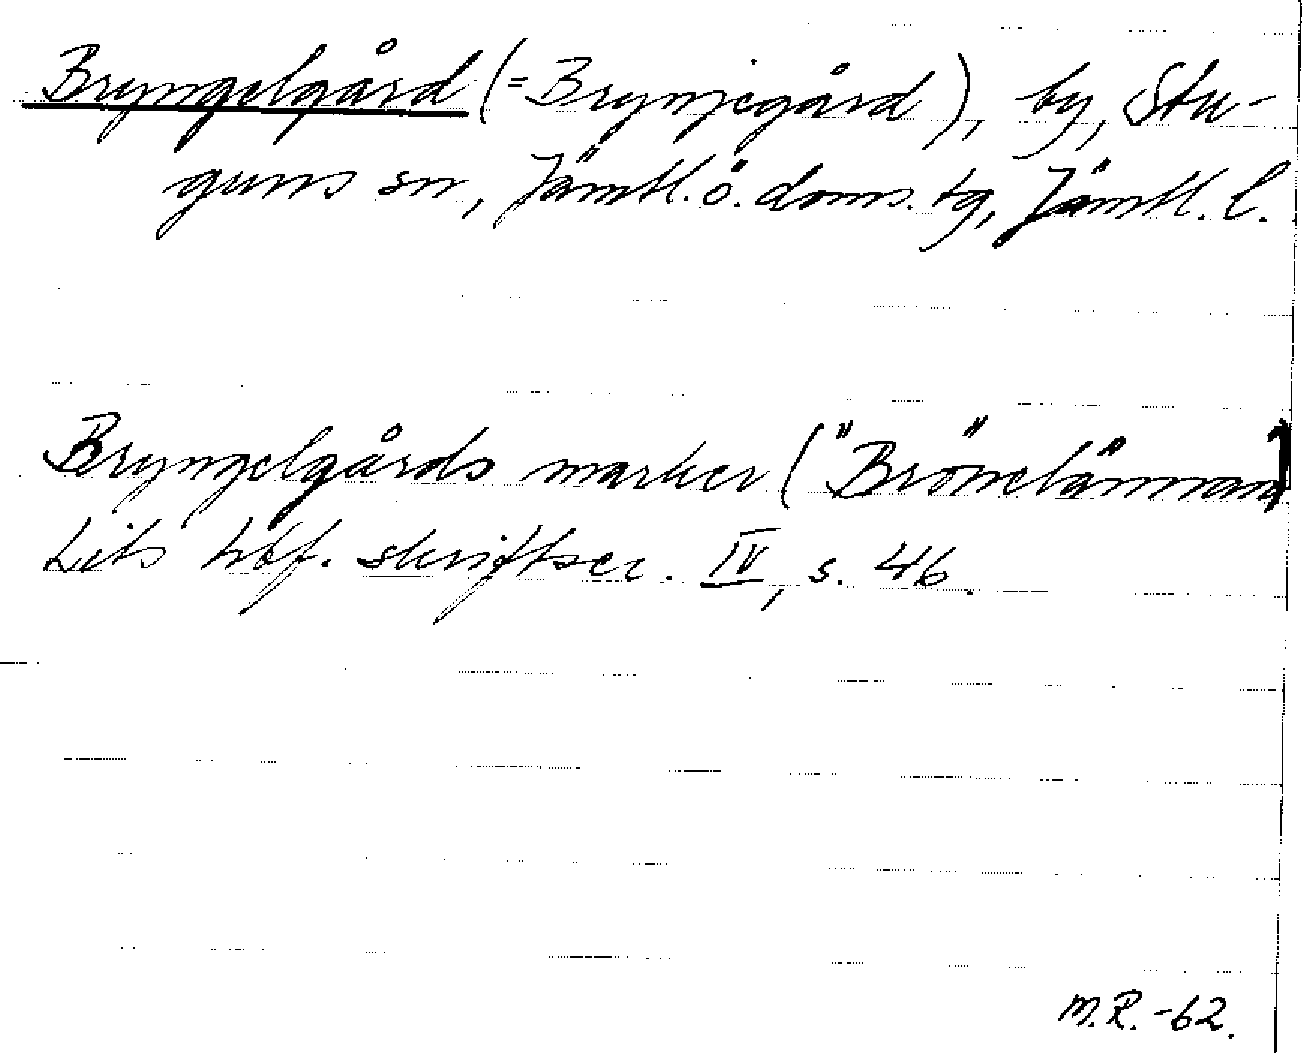 Bryngelgård (=Brynjegård), by, Stu-
guns sn, Jämtl. ö. doms. tg, Jämtl. l.
Bryngelgårds marker ("Brönelännan"
Lits hbf. skriftser. IV, s. 46.
M.R.-62.